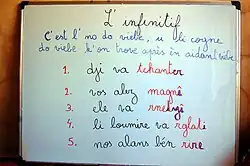 L'infinitif
C'est l' no do viebe, u li cogne
do viebe k'on trove après èn aidant viebe.
1. dji va tchanter
2. vos alez magnî
3. ele va rnetyî
4. li loumire va rglati
5. nos alans bén rire